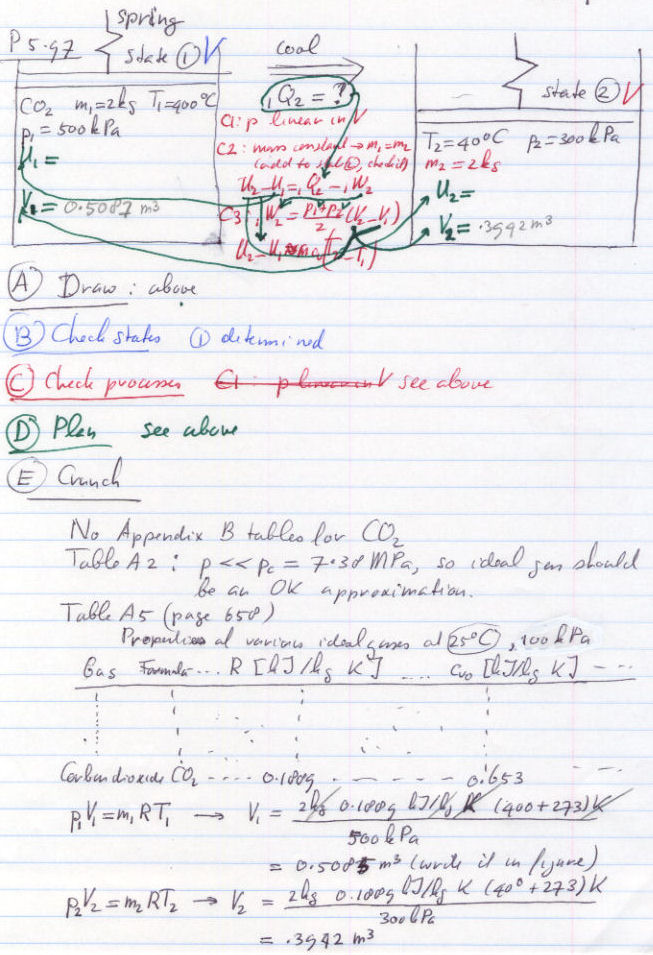 P 5.97
spring
state ① V
cool
CO₂ m₁=2kg T₁=400°C
p₁=500kPa
U₁=
V₁=0.5087 m³
₁Q₂=?
C1: p linear in V
C2: mass constant → m₁=m₂
(add to state ②, check it)
U₂-U₁=₁Q₂-₁W₂
C3: ₁W₂=(p₁+p₂)/2 (V₂-V₁)
U₂-U₁≈m cᵥ(T₂-T₁)
state ② V
T₂=40°C p₂=300kPa
m₂=2kg
U₂=
V₂=.3942 m³
Ⓐ Draw: above
Ⓑ Check states ① determined
Ⓒ Check processes C1: p linear in V see above
Ⓓ Plan see above
Ⓔ Crunch
No Appendix B tables for CO₂
Table A2: p << pc = 7.38 MPa, so ideal gas should
be an OK approximation.
Table A5 (page 658)
Properties of various ideal gases at 25°C, 100 kPa
Gas Formula ... R [kJ/kg K] .... Cvo [kJ/kg K] - ...
Carbondioxide CO₂ ---- 0.1889 - - - - - 0.653
p₁V₁=m₁RT₁ → V₁ = 2kg 0.1889 kJ/kg K (400+273)K
500kPa
= 0.5085 m³ (write it in figure)
p₂V₂=m₂RT₂ → V₂ = 2kg 0.1889 kJ/kg K (40°+273)K
300kPa
= .3942 m³